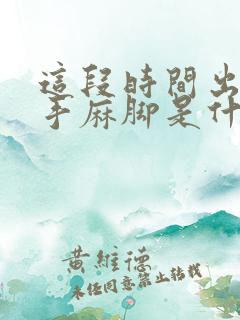 這段時間出
手麻脚是什
黄維德
未经同意禁止转载